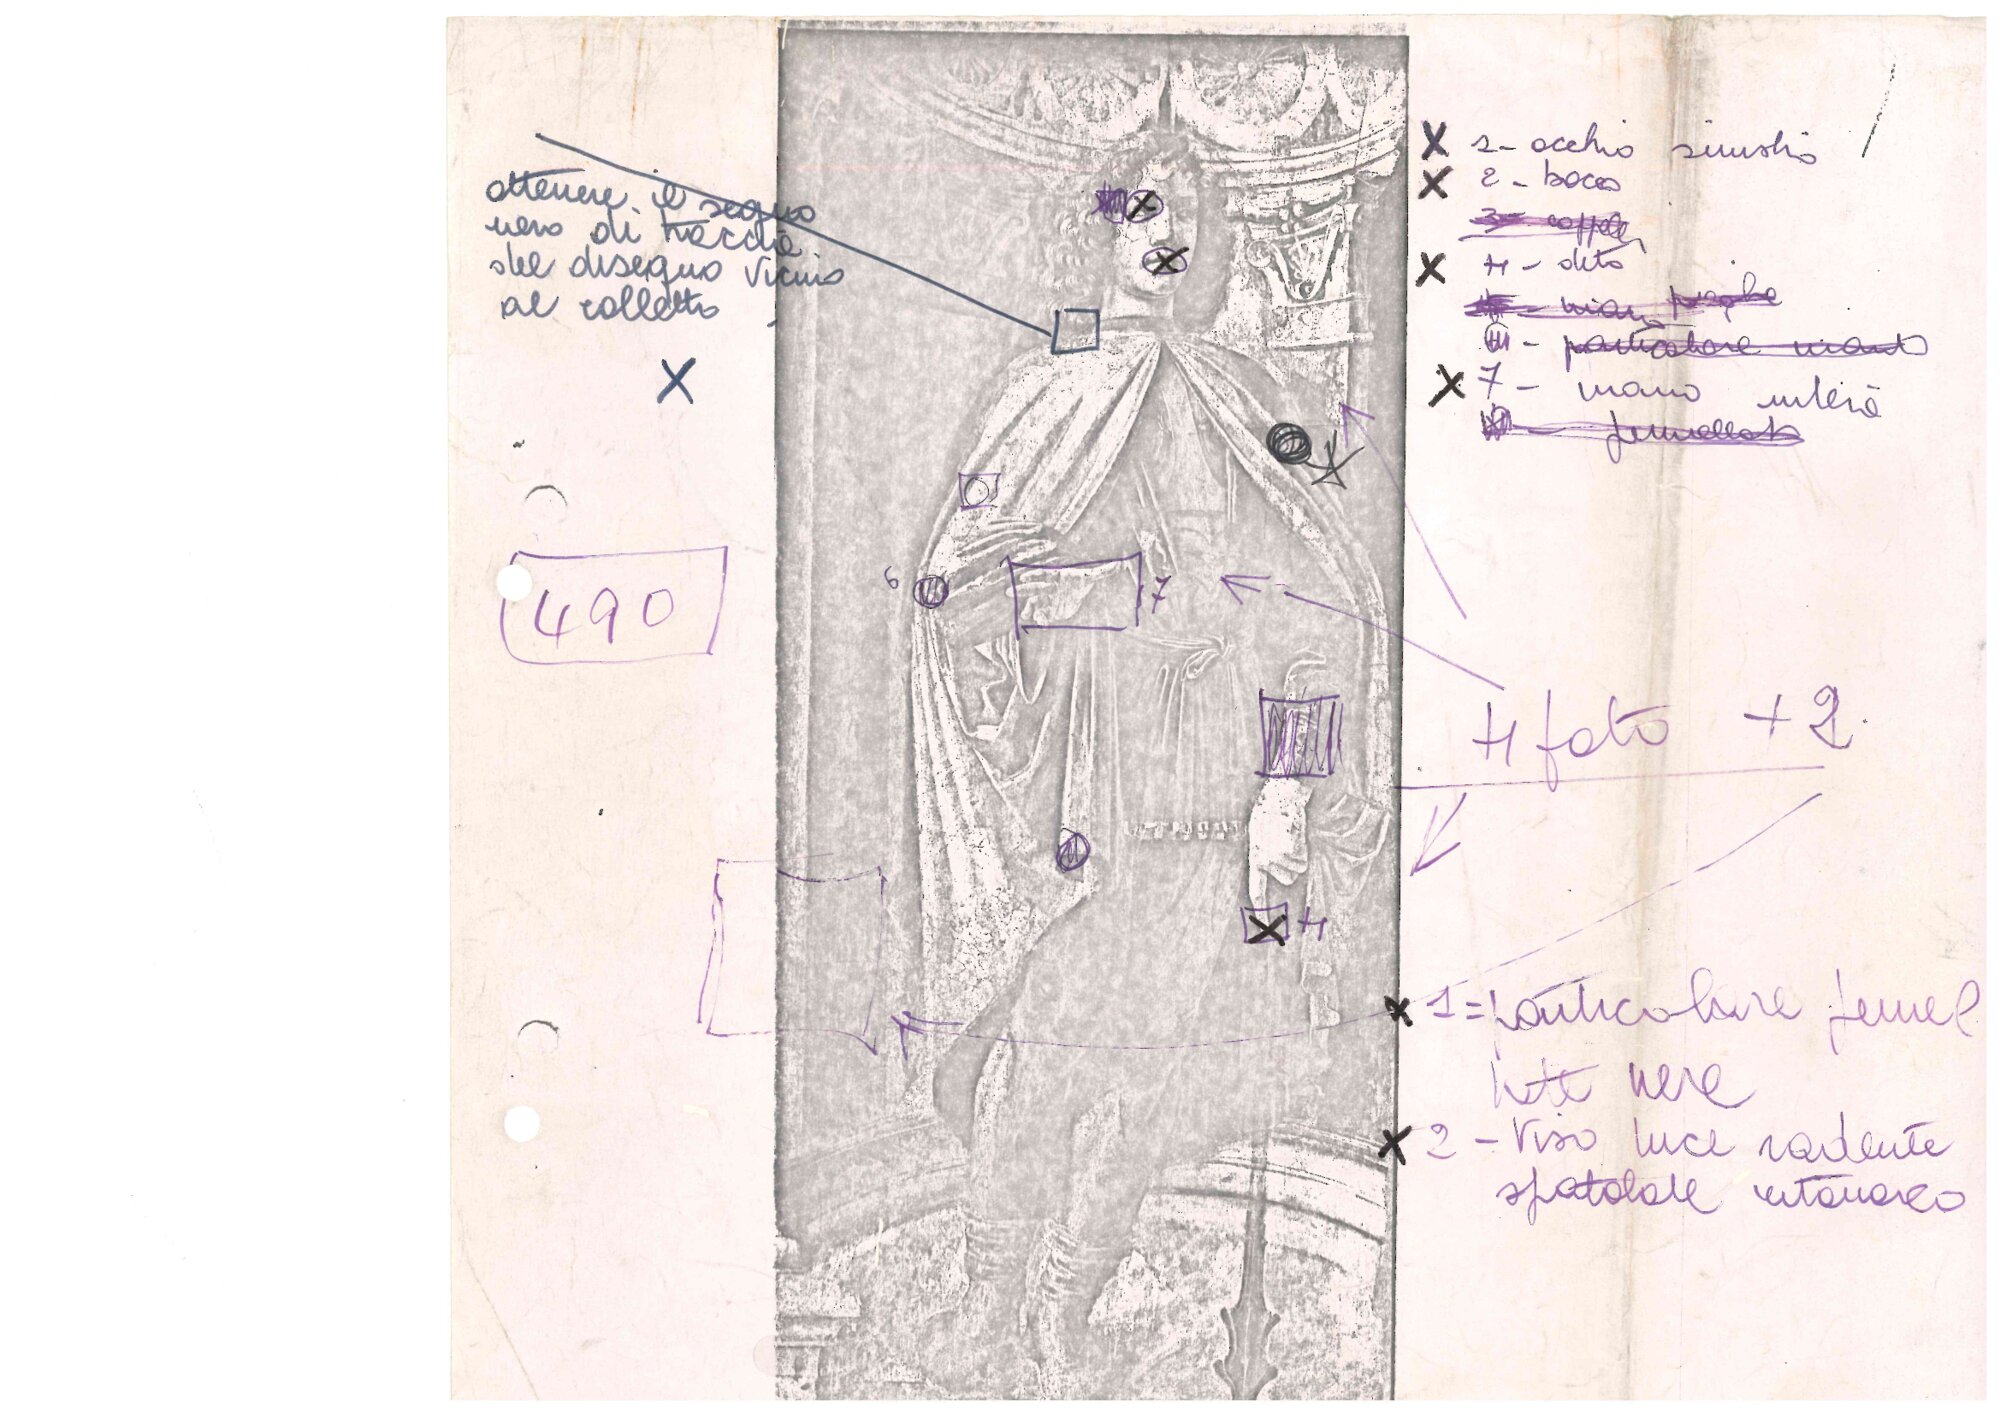 ottenere il segno
nero di traccia
del disegno vicino
al colletto
X
490
X 1- occhio sinistro
X 2 - bocca
X 4 - dito
particolare manto
X 7 - mano intera
6
7
4
4 foto + 2
X 1 = particolare
nere
X 2 - Viso luce radente
spatolate intonaco